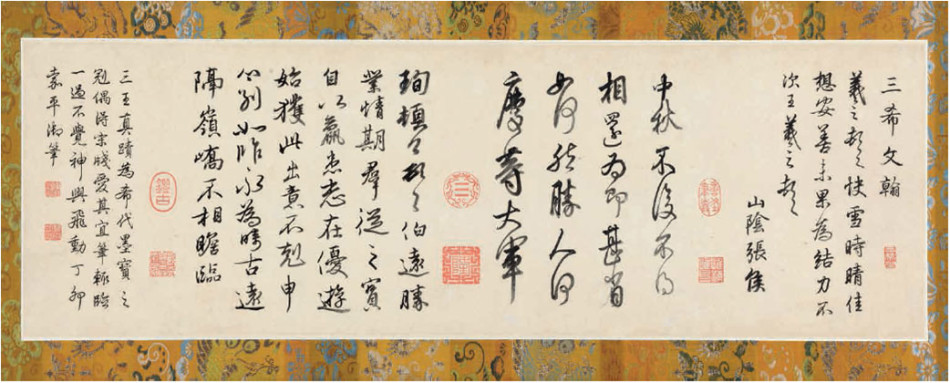 三希文翰
羲之頓首快雪時晴佳
想安善未果為結力不
次王羲之頓首
山陰張侯
中秋不復不得
相還為即甚省
如何然勝人何
慶等大軍
珣頓首頓首伯遠勝
業情期羣從之寶
自以羸患志在優遊
始獲此出意不剋申
分別如昨永為疇古遠
隔嶺嶠不相瞻臨
鑑古
三王真蹟為希代墨寶之
冠偶得宋牋愛其宜筆輒臨
一過不覺神與飛動丁卯
嘉平御筆